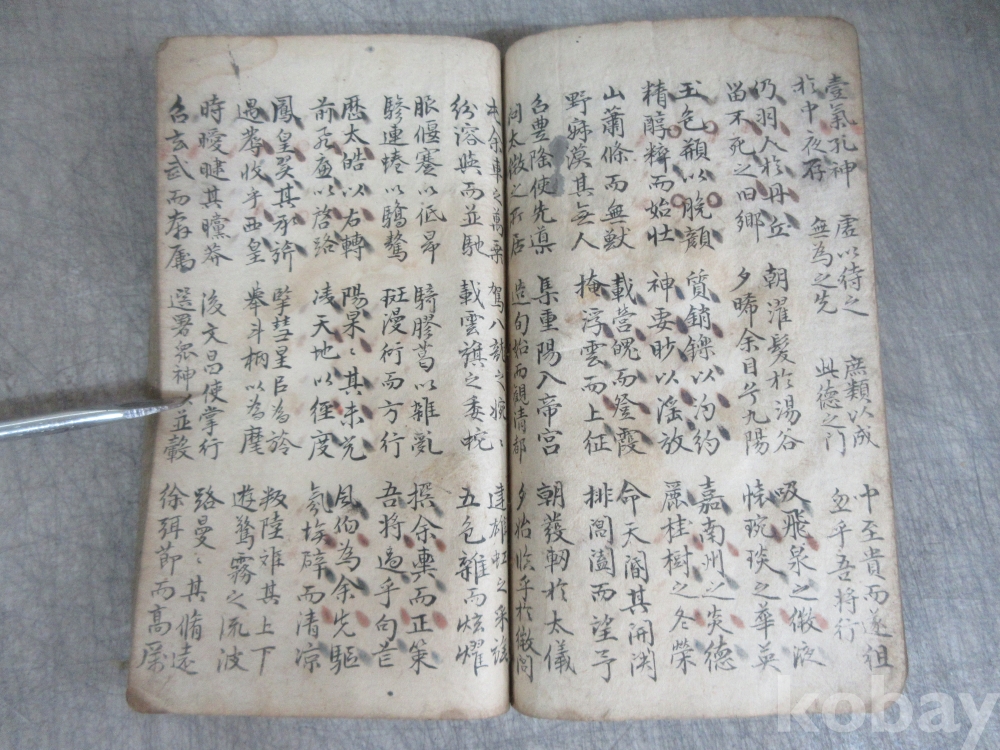 壹氣孔神
於中夜存
虛以待之
無為之先
庶類以成
此德之門
中至貴而遂徂
忽乎吾将行
仍羽人於丹丘
留不死之旧鄉
朝濯髮於湯谷
夕晞余目兮九陽
吸飛泉之微液
懐琬琰之華英
玉色頩以脕顏
精醇粹而始壮
質銷鑠以汋約
神要眇以淫放
嘉南州之炎德
麗桂樹之冬榮
山蕭條而無獣
野寂漠其無人
載營魄而登霞
掩浮雲而上征
命天閽其開関
排閶闔而望予
召豊隆使先導
問太微之所居
集重陽入帝宮
造旬始而観清都
朝發軔於太儀
夕始临乎於微閭
屯余車之萬乗
紛溶與而並馳
駕八龍之婉〻
載雲旗之委蛇
建雄虹之采旄
五色雜而炫耀
服偃蹇以低昂
驂連蜷以驕驁
騎膠葛以雜亂
斑漫衍而方行
撰余轡而正策
吾将過乎句芒
歷太皓以右轉
前飛廉以啓路
陽杲〻其未光
凌天地以径度
風伯為余先驅
氛埃辟而清凉
鳳皇翼其承旂
遇蓐收乎西皇
擥彗星以為旍
舉斗柄以為麾
叛陸離其上下
遊驚霧之流波
時曖曃其曭莽
召玄武而奔属
後文昌使掌行
選署衆神以並轂
路曼〻其脩遠
徐弭節而高厲
kobay